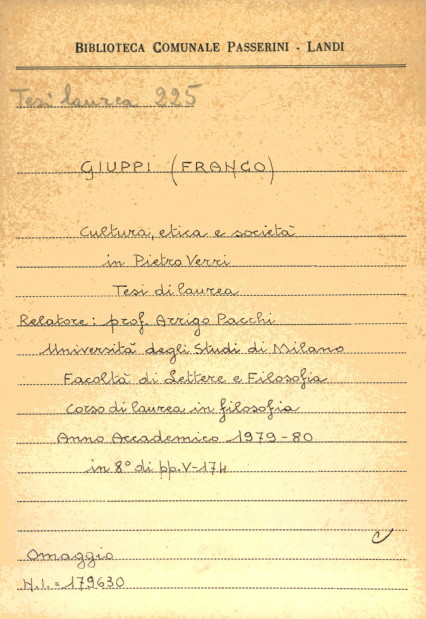 BIBLIOTECA COMUNALE PASSERINI - LANDI
Tesi laurea 225
GIUPPI (FRANCO)
Cultura, etica e società
in Pietro Verri
Tesi di laurea
Relatore: prof. Arrigo Pacchi
Università degli Studi di Milano
Facoltà di Lettere e Filosofia
Corso di laurea in filosofia
Anno Accademico 1979-80
in 8° di pp. V-174
Omaggio
N.I. = 179630